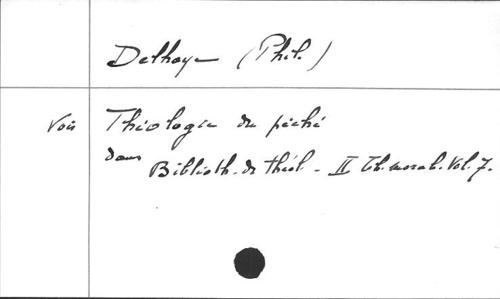 Delhaye (Phil.)
Voir Théologie du péché
dans Biblioth. de théol. - II Th. moral. Vol. 7.